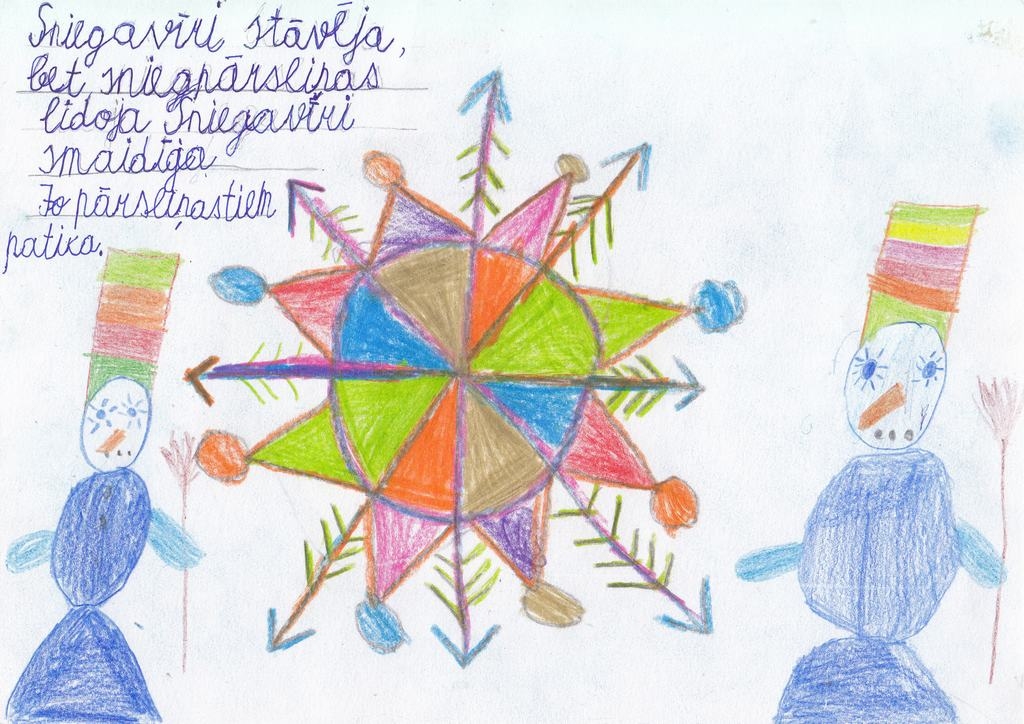 Sniegavīri stāvēja,
bet sniegpārsliņas
lidoja Sniegavīri
smaidīja
Jo pārsliņas tiem
patika.